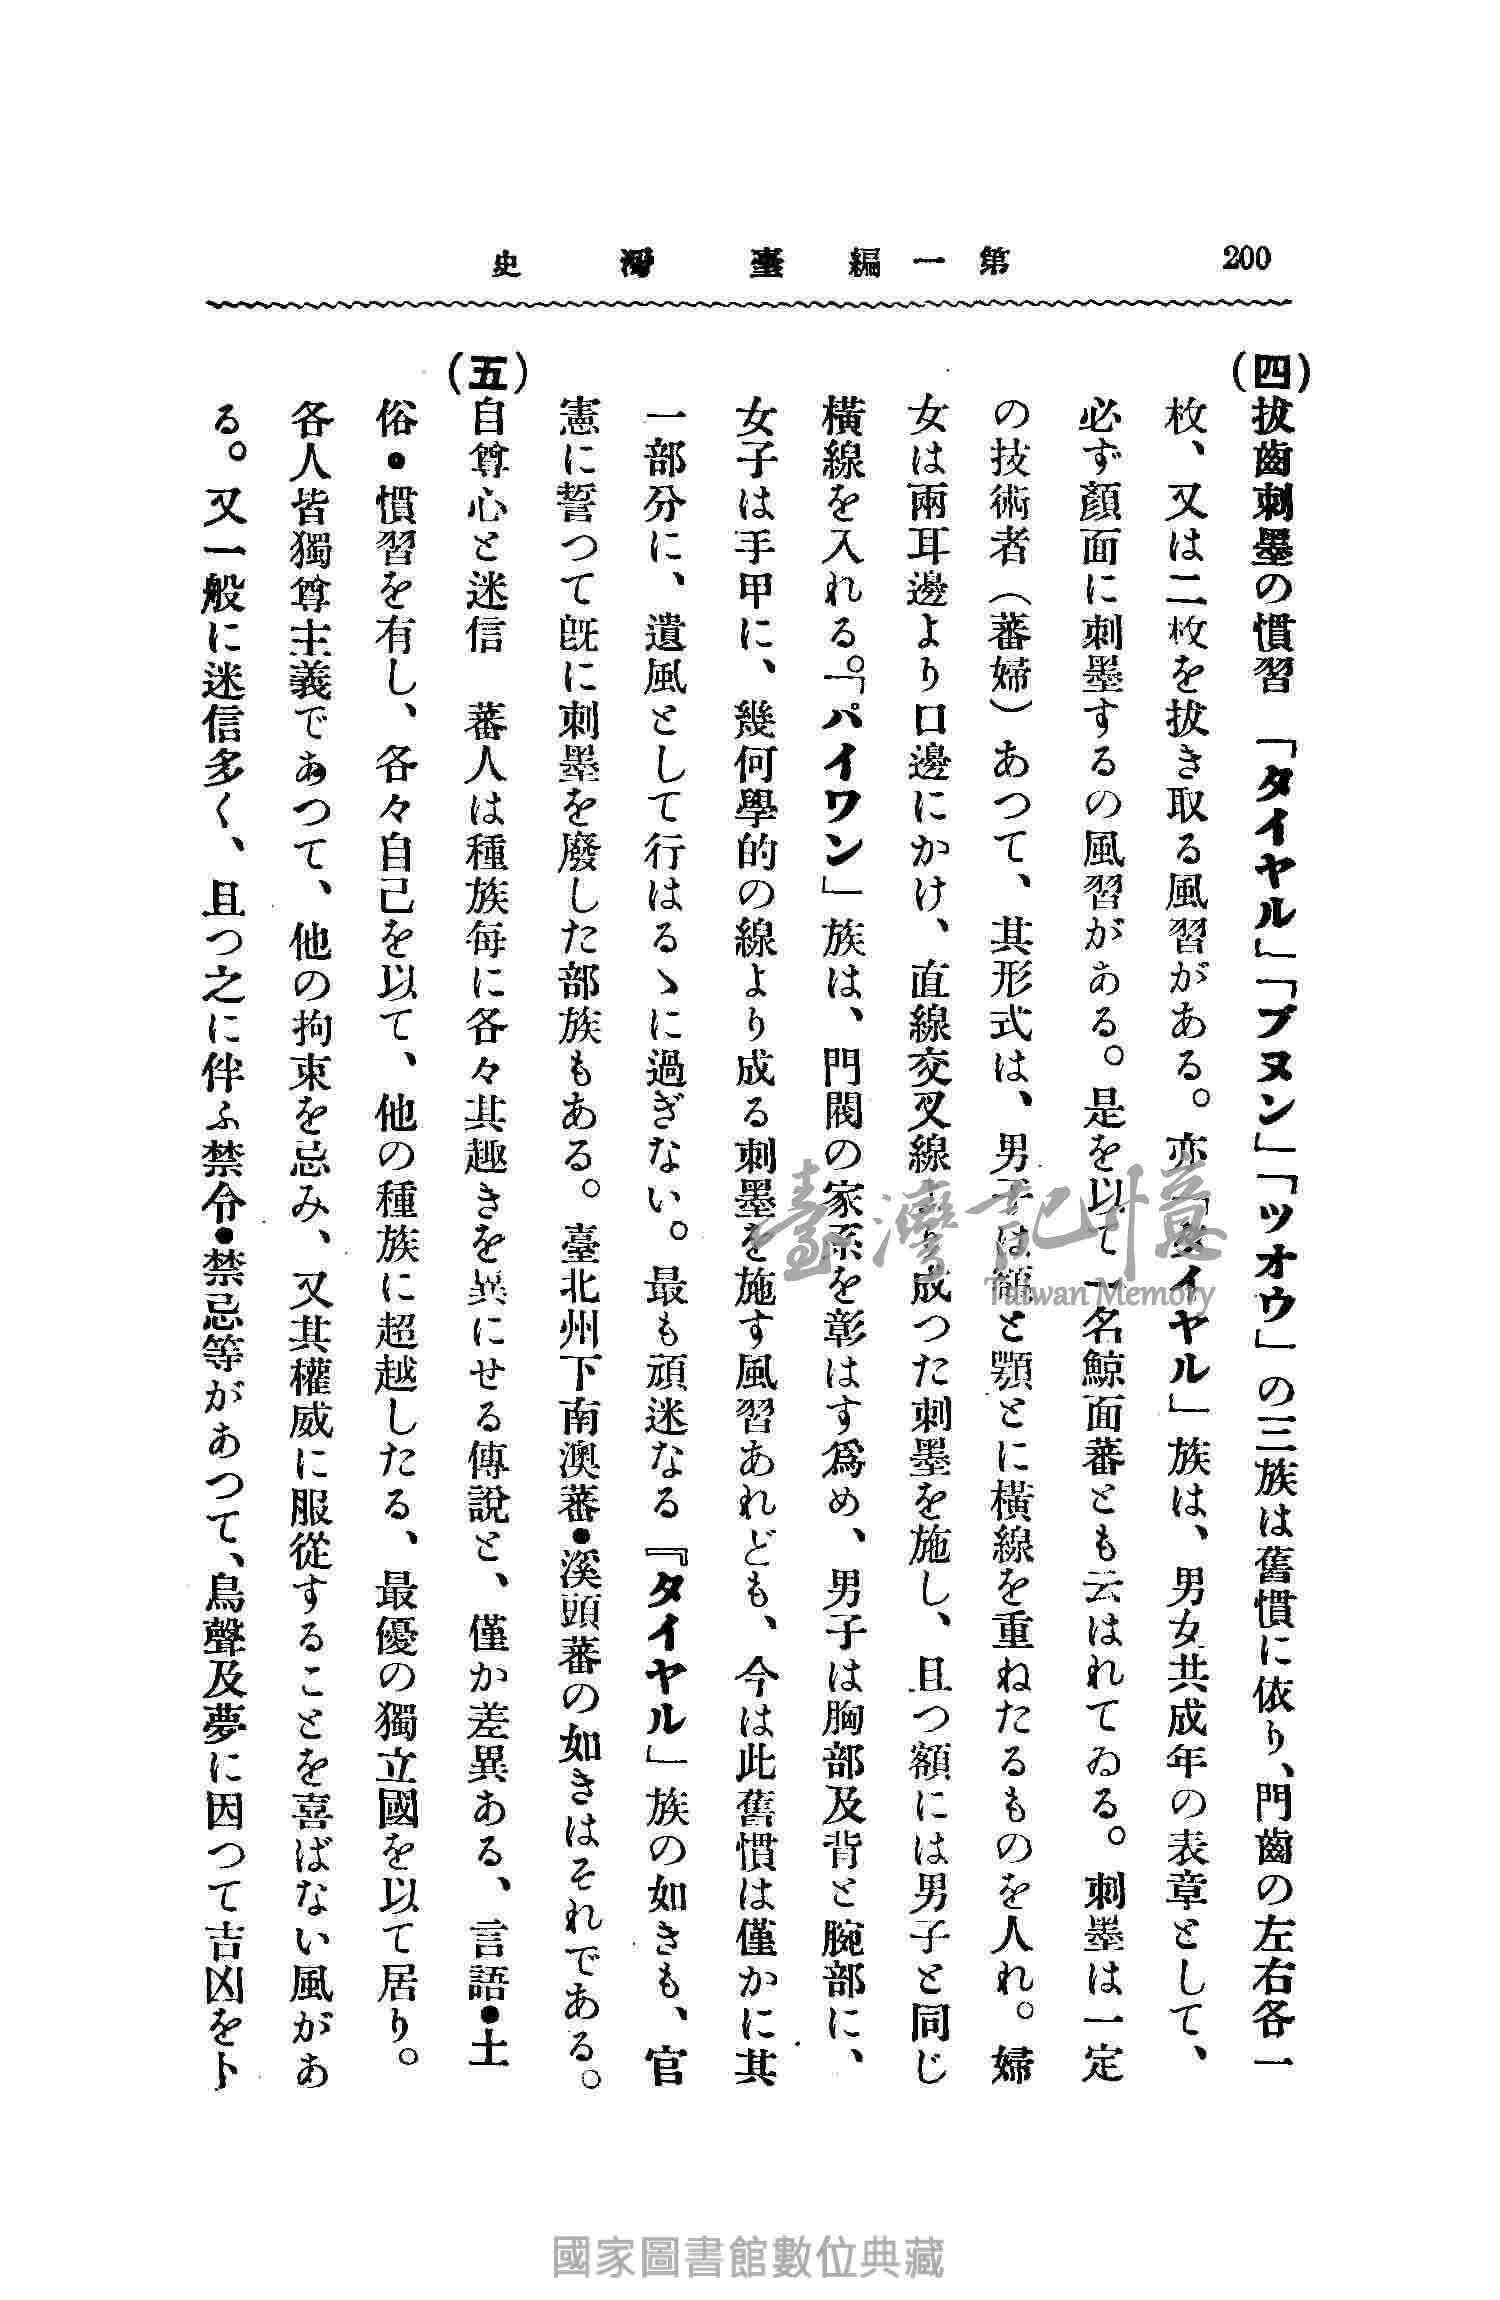 200
第一編臺灣史
(四)拔齒刺墨の慣習　「タイヤル」「ブヌン」「ツオウ」の三族は舊慣に依り、門齒の左右各一
枚、又は二枚を拔き取る風習がある。亦「タイヤル」族は、男女共成年の表章として、
必ず顏面に刺墨するの風習がある。是を以て一名鯨面蕃とも云はれてゐる。刺墨は一定
の技術者（蕃婦）あつて、其形式は、男子は額と顎とに橫線を重ねたるものを人れ。婦
女は兩耳邊より口邊にかけ、直線交叉線より成つた刺墨を施し、且つ額には男子と同じ
橫線を入れる。「パイワン」族は、門閥の家系を彰はす爲め、男子は胸部及背と腕部に、
女子は手甲に、幾何學的の線より成る刺墨を施す風習あれども、今は此舊慣は僅かに其
一部分に、遺風として行はるゝに過ぎない。最も頑迷なる『タイヤル」族の如きも、官
憲に誓つて既に刺墨を廢した部族もある。臺北州下南澳蕃•溪頭蕃の如きはそれである。
(五)自尊心と迷信　蕃人は種族每に各々其趣きを異にせる傳說と、僅か差異ある、言語•土
俗•慣習を有し、各々自己を以て、他の種族に超越したる、最優の獨立國を以て居り。
各人皆獨尊主義であつて、他の拘束を忌み、又其權威に服從することを喜ばない風があ
る。又一般に迷信多く、且つ之に伴ふ禁令•禁忌等があつて、鳥聲及夢に因つて吉凶をト
臺灣記憶
Taiwan Memory
國家圖書館數位典藏